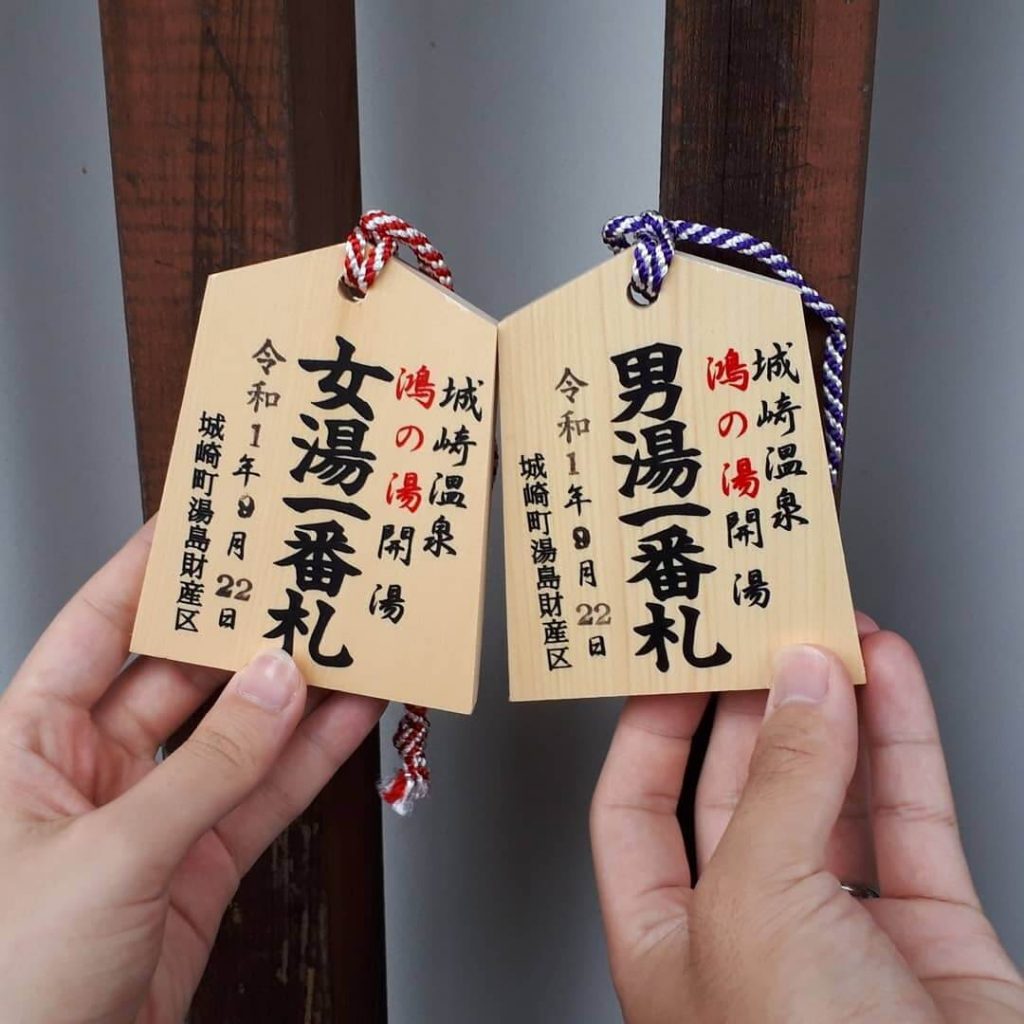 城崎温泉
鴻の湯開湯
女湯一番札
令和1年9月22日
城崎町湯島財産区
城崎温泉
鴻の湯開湯
男湯一番札
令和1年9月22日
城崎町湯島財産区